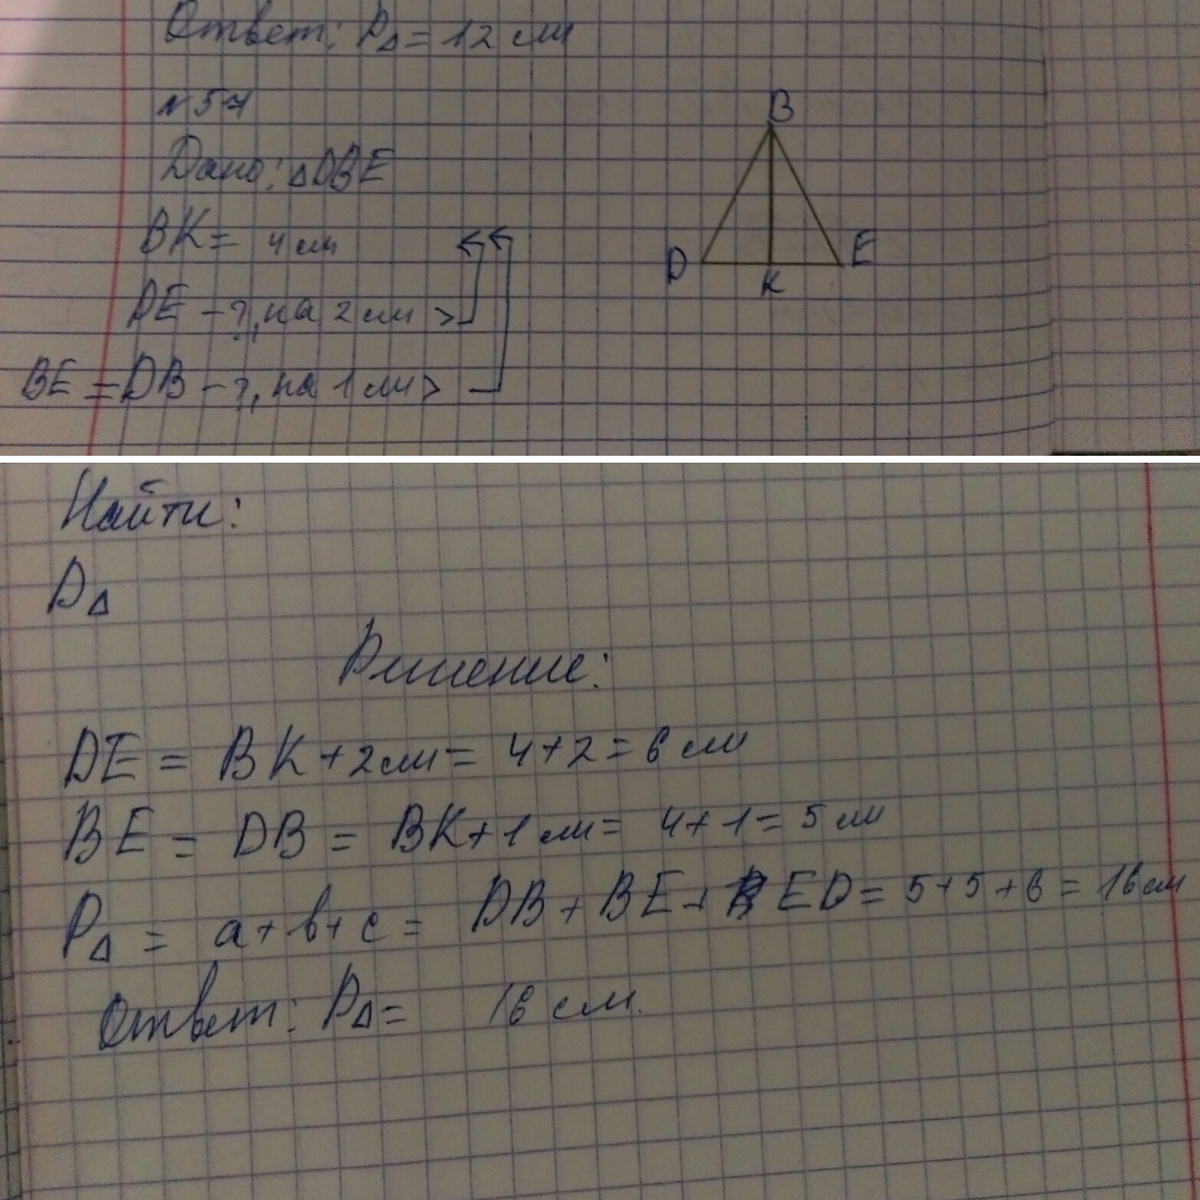 Ответ: P△ = 12 см
№57
Дано: △DBE
BK = 4 см
DE - ?, на 2 см >
BE = DB - ?, на 1 см >
B
D
E
K
Найти:
P△
Решение:
DE = BK + 2 см = 4 + 2 = 6 см
BE = DB = BK + 1 см = 4 + 1 = 5 см
P△ = a + b + c = DB + BE + ED = 5 + 5 + 6 = 16 см
Ответ: P△ = 16 см.